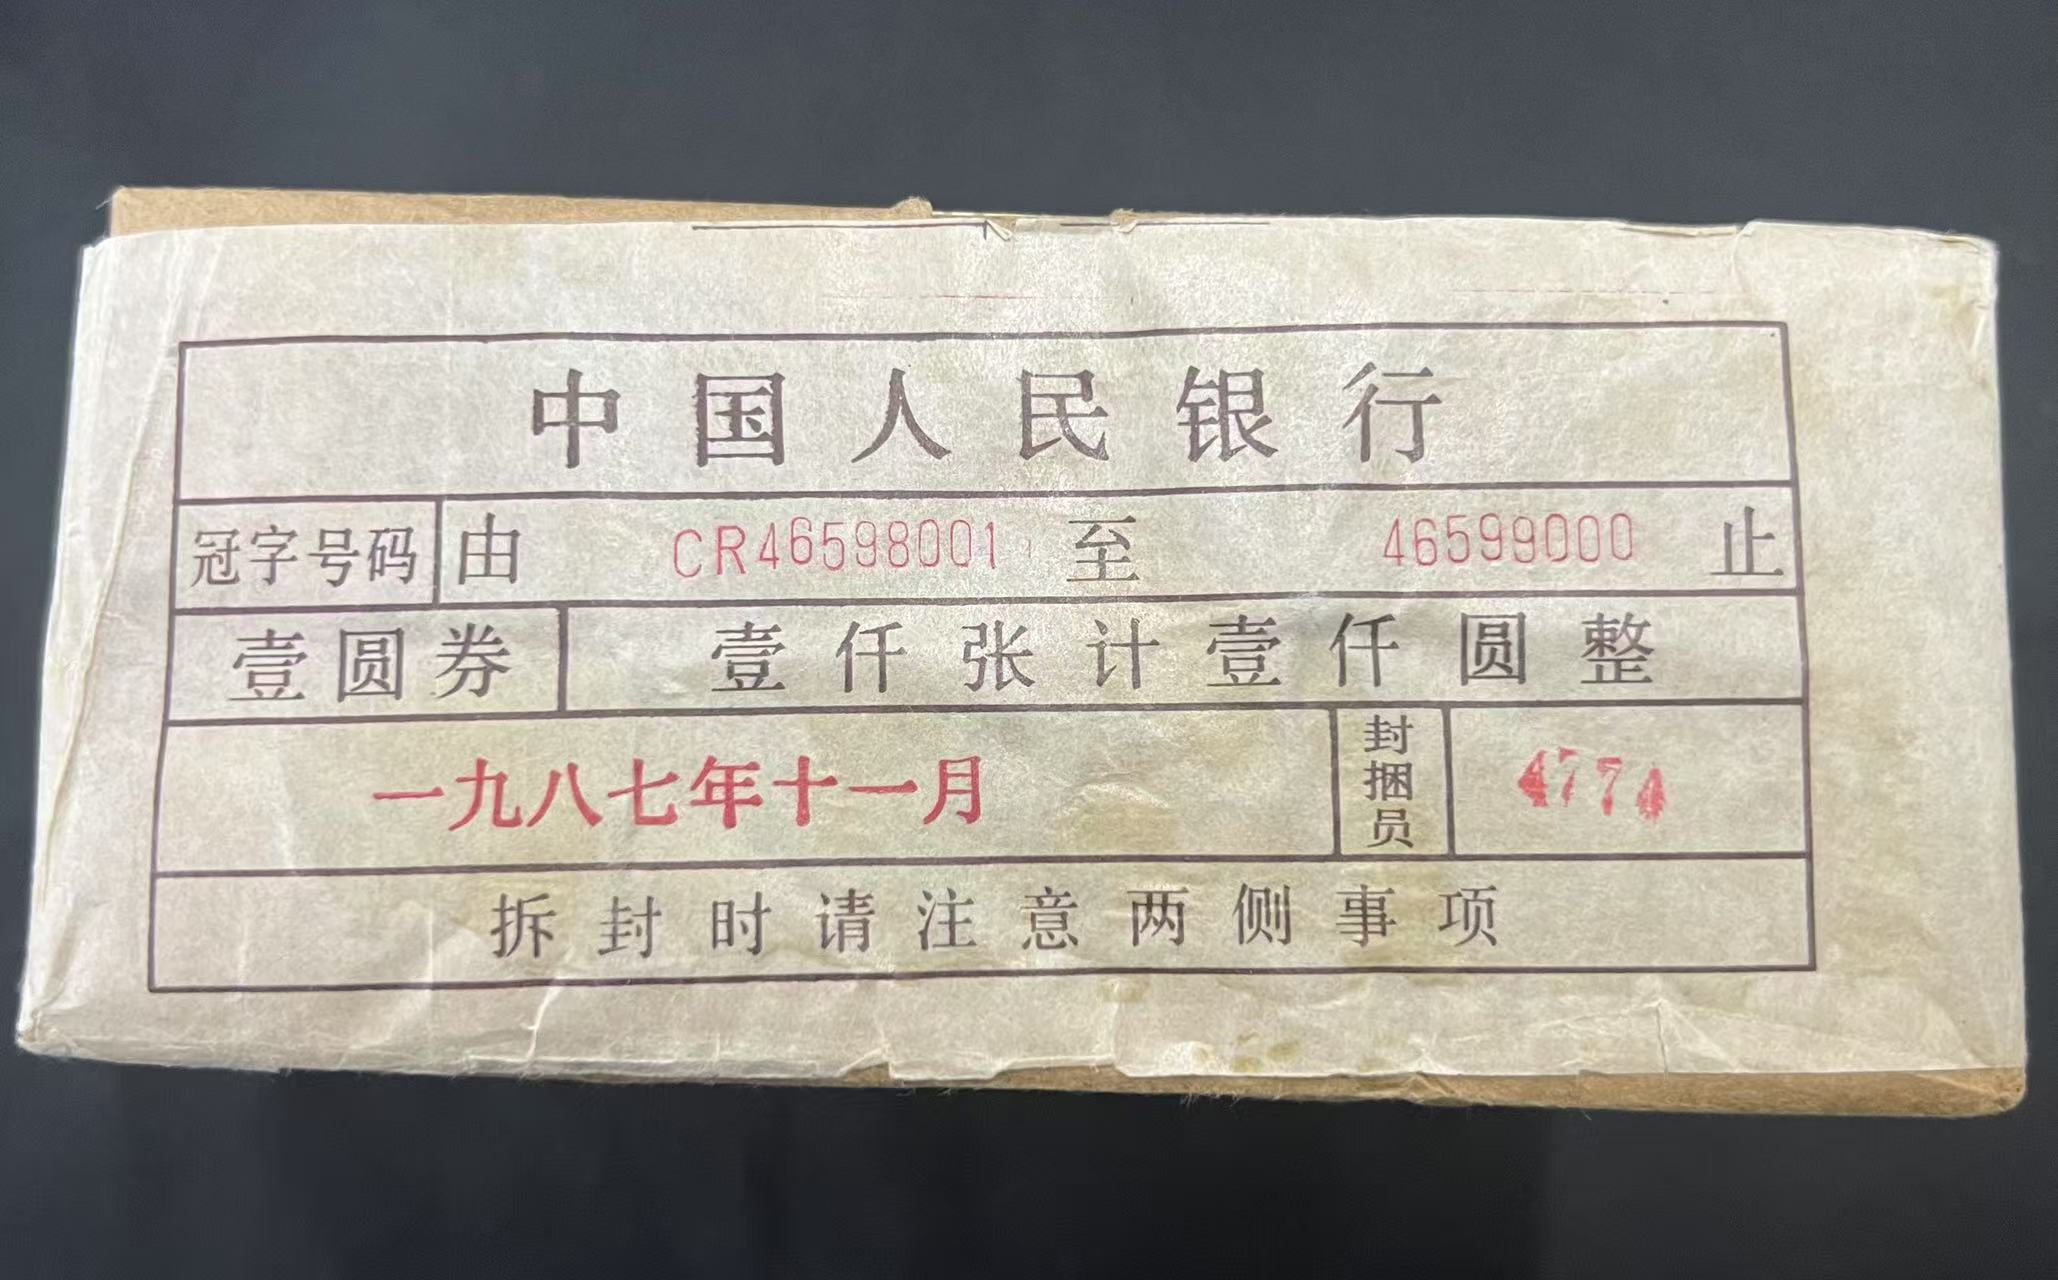 中国人民银行
冠字号码 由 CR46598001 至 46599000 止
壹圆券 壹仟张计壹仟圆整
一九八七年十一月 封捆员
拆封时请注意两侧事项